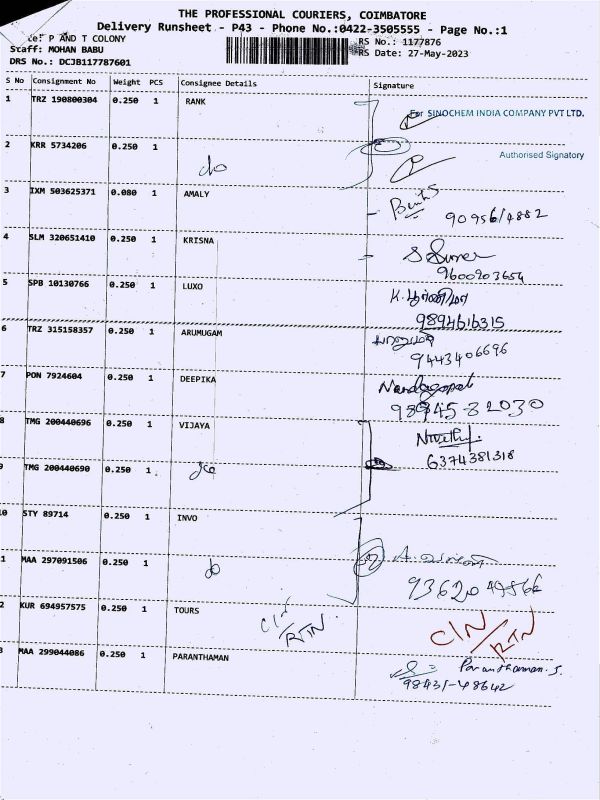 THE PROFESSIONAL COURIERS, COIMBATORE
Delivery Runsheet - P43 - Phone No.:0422-3505555 - Page No.:1
ce: P AND T COLONY
RS No.: 1177876
Staff: MOHAN BABU
RS Date: 27-May-2023
DRS No.: DCJB117787601
S No Consignment No Weight PCS Consignee Details Signature
1 TRZ 190800304 0.250 1 RANK
For SINOCHEM INDIA COMPANY PVT LTD.
2 KRR 5734206 0.250 1
Authorised Signatory
do
3 IXM 503625371 0.080 1 AMALY
4 SLM 320651410 0.250 1 KRISNA
9600203654
5 SPB 10130766 0.250 1 LUXO
9894616315
6 TRZ 315158357 0.250 1 ARUMUGAM
9443406696
7 PON 7924604 0.250 1 DEEPIKA
Nandagopal
98945-82030
8 TMG 200440696 0.250 1 VIJAYA
6374381318
9 TMG 200440690 0.250 1
10 STY 89714 0.250 1 INVO
1 MAA 297091506 0.250 1
do
93620 49866
2 KUR 694957575 0.250 1 TOURS
C/N
RTN
C/N
RTN
3 MAA 299044086 0.250 1 PARANTHAMAN
Paranthaman. J.
98431-48642